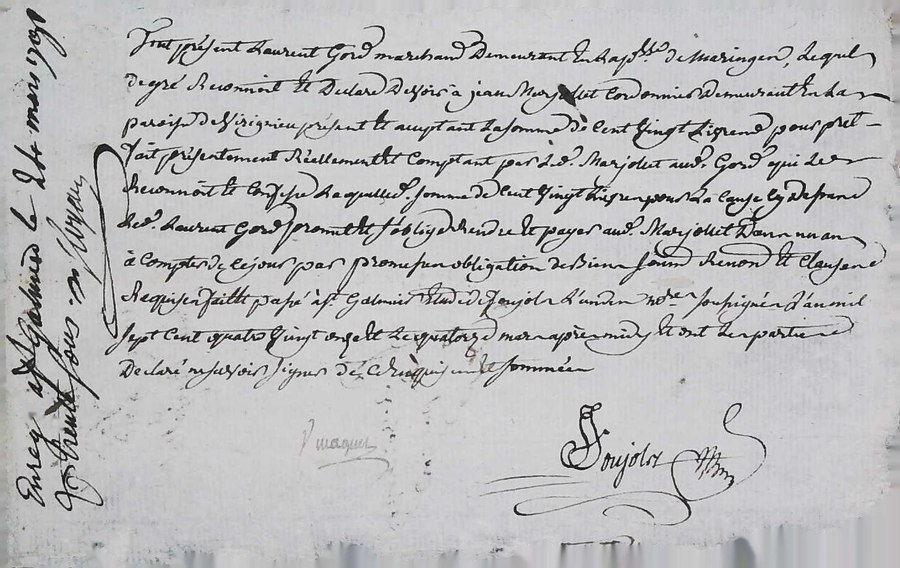 Fut présent Laurent Gord marchand Demeurant En la p^sse de Maringer, Lequel
de gré Reconnoit Et Declare Devoir a jean Marjollet Cordonnier Demeurant En La
paroisse de Virignieu présent Et acceptant La somme de Cent Vingt Livres pour pret
fait présentement Réellement Et Comptant par Le d. Marjollet aud. Gord qui Le
Reconnoit Et Confesse Laquelle d. somme de Cent Vingt Livres pour La Cause Cy Dessus
Led. Laurent Gord promet Et s'oblige Rendre Et payer aud. Marjollet Dans un an
à Compter de Ce jour par promesses obligation de Biens soum Renon Et Clauses
Requises fait Et passé à st Galmier Etude de Soujols L'un des no^res soussignés L'an mil
sept Cent quatre Vingt onze Et Le quatorze mars après midi Et ont Les parties
Declaré ne sçavoir signer de Ce Requises et sommées
Soujols
Enreg a st Galmier le 24 mars 1791
Rs trente sous